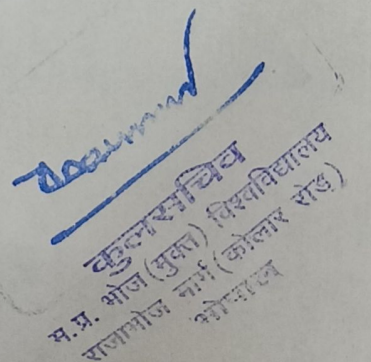 कुलसचिव
म.प्र. भोज (मुक्त) विश्वविद्यालय
राजाभोज मार्ग (कोलार रोड)
भोपाल